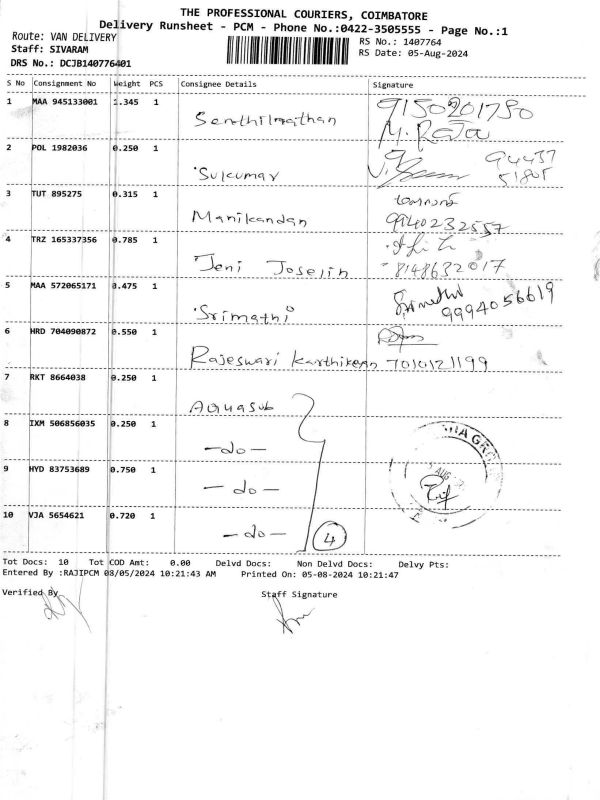 THE PROFESSIONAL COURIERS, COIMBATORE
Delivery Runsheet - PCM - Phone No.:0422-3505555 - Page No.:1
Route: VAN DELIVERY
RS No.: 1407764
Staff: SIVARAM
RS Date: 05-Aug-2024
DRS No.: DCJB140776401
S No Consignment No Weight PCS Consignee Details Signature
1 MAA 945133001 1.345 1 Senthilnathan 9150201780
M. Raja
2 POL 1982036 0.250 1 Sukumar 94437
51805
3 TUT 895275 0.315 1 Manikandan
9940232557
4 TRZ 165337356 0.785 1 Jeni Joselin
8148632017
5 MAA 572065171 0.475 1 Srimathi Srimathi
9994056619
6 HRD 704090872 0.550 1 Rajeswari Karthikeyan 7010121199
7 RKT 8664038 0.250 1 Aquasub
8 IXM 506856035 0.250 1 -do-
9 HYD 83753689 0.750 1 -do-
10 VJA 5654621 0.720 1 -do- 4
AUG
Tot Docs: 10 Tot COD Amt: 0.00 Delvd Docs: Non Delvd Docs: Delvy Pts:
Entered By :RAJIPCM 08/05/2024 10:21:43 AM Printed On: 05-08-2024 10:21:47
Verified By
Staff Signature